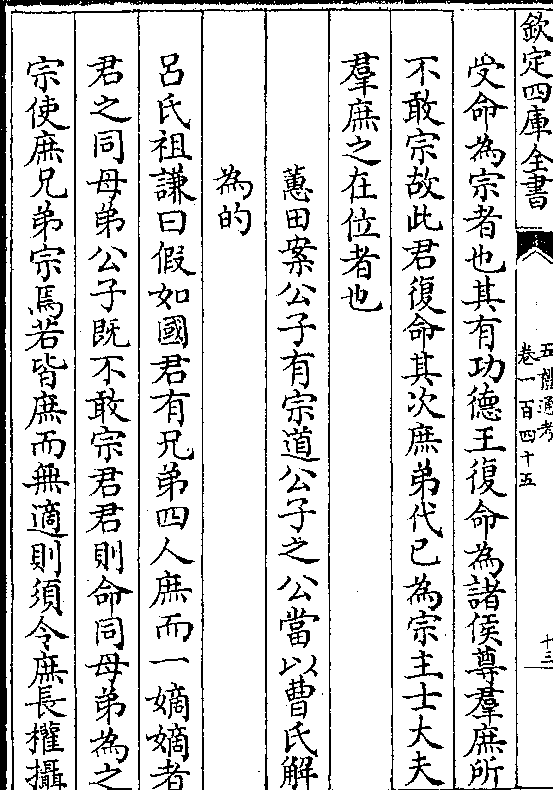 欽定四庫全書
五禮通考
卷一百四十五
十三
受命為宗者也其有功德王復命為諸侯尊羣庶所
不敢宗故此君復命其次庶弟代已為宗主士大夫
羣庶之在位者也
蕙田案公子有宗道公子之公當以曹氏解
為的
呂氏祖謙曰假如國君有兄弟四人庶而一嫡嫡者
君之同母弟公子既不敢宗君君則命同母弟為之
宗使庶兄弟宗焉若皆庶而無適則須令庶長權攝